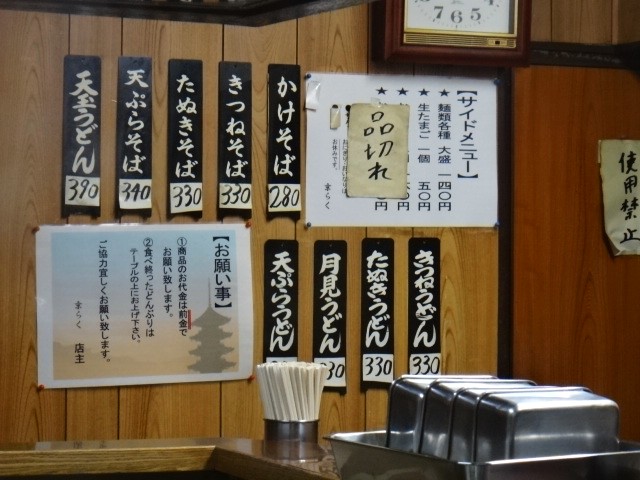 かけそば
280
きつねそば
330
たぬきそば
330
天ぷらそば
340
天玉うどん
390
【サイドメニュー】
★ 麺類各種 大盛 一四〇円
★ 生たまご 一個 五〇円
品切れ
お休みです。
使用禁止
きつねうどん
330
たぬきうどん
330
月見うどん
330
天ぷらうどん
【お願い事】
①商品のお代金は前金で
お願い致します。
②食べ終ったどんぶりは
テーブルの上にお上げ下さい。
ご協力宜しくお願い致します。
店主
7 6 5